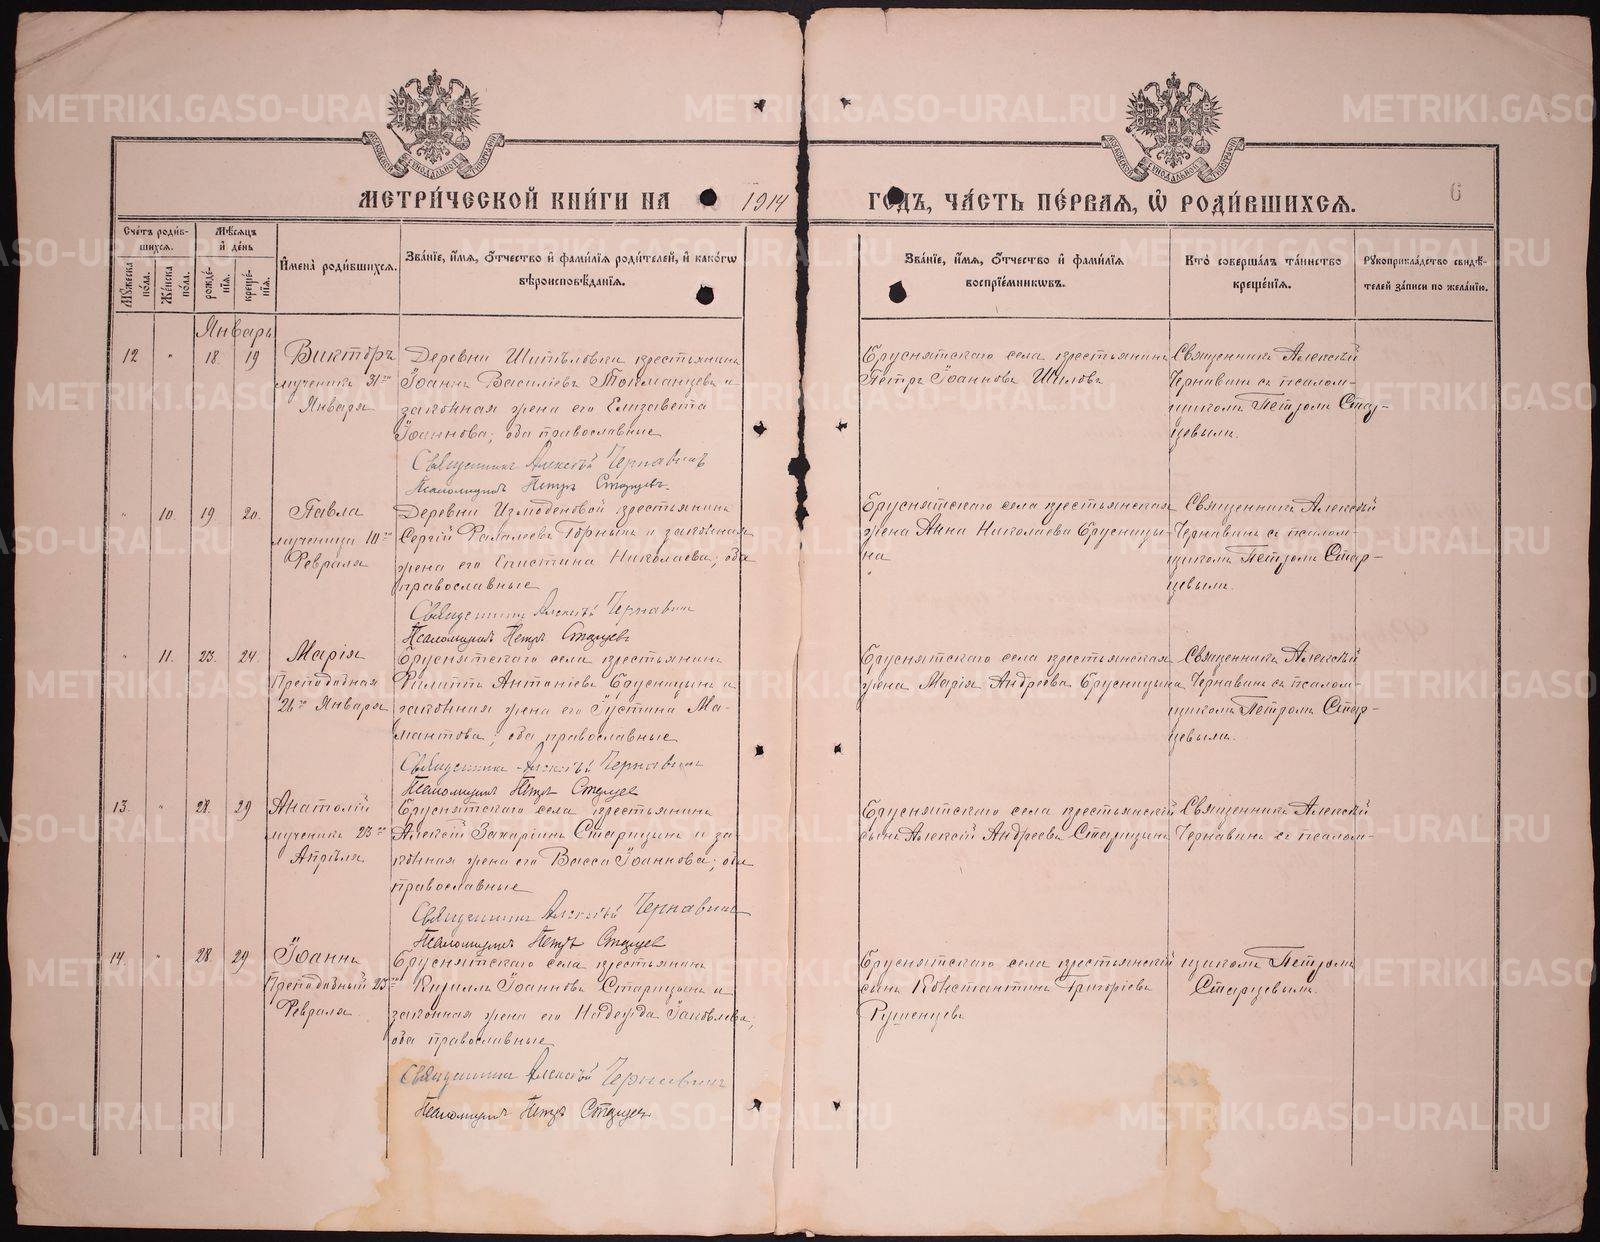 МЕТРИ́ЧЕСКОЙ КНИ́ГИ НА 1914 ГОДЪ, ЧА́СТЬ ПЕ́РВАЯ, Ѡ РОДИ́ВШИХСЯ.
6
Сче́тъ роди́вшихся.
Му́жеска по́ла.
Же́нска по́ла.
Мѣ́сяцъ и́ де́нь
рожде́нїя.
креще́нїя.
И́мена̀ роди́вшихся.
Зва́нїе, и́мя, о́тчество и́ фами́лїя роди́телей, и́ како́гѡ вѣроисповѣ́данїя.
Зва́нїе, и́мя, о́тчество и́ фами́лїя воспрїе́мникѡвъ.
Кто̀ соверша́лъ та́инство креще́нїя.
Рꙋкоприкла́дство свидѣ́телей за́писи по жела́нїю.
Январь
12
"
18
19
Викторъ
мученика 31го
Января
Деревни Шипѣловки крестьянинъ
Іоаннъ Василіевъ Токманцевъ и
законная жена его Елизавета
Іоаннова; оба православные
Священникъ Алексѣй Чернавинъ
Псаломщикъ Петръ Старцевъ
Бруснятскаго села крестьянинъ
Петръ Іоанновъ Шиловъ
Священникъ Алексѣй
Чернавинъ съ псалом-
щикомъ Петромъ Стар-
цевымъ.
"
10.
19.
20.
Павла
мученица 10го
Февраля
Деревни Измоденовой крестьянинъ
Сергій Фалалеевъ Горныхъ и законная
жена его Епистима Николаева; оба
православные
Священникъ Алексѣй Чернавинъ
Псаломщикъ Петръ Старцевъ
Бруснятскаго села крестьянская
жена Анна Николаева Брусницы-
на
Священникъ Алексѣй
Чернавинъ съ псалом-
щикомъ Петромъ Стар-
цевымъ.
"
11.
23.
24.
Марія
Преподобная
26го Января
Бруснятскаго села крестьянинъ
Филиппъ Антоніевъ Брусницынъ и
законная жена его Іустина Ма-
мантова; оба православные
Священникъ Алексѣй Чернавинъ
Псаломщикъ Петръ Старцевъ
Бруснятскаго села крестьянская
жена Марія Андреева Брусницына
Священникъ Алексѣй
Чернавинъ съ псалом-
щикомъ Петромъ Стар-
цевымъ.
13.
"
28.
29
Анатолій
мученика 23го
Апрѣля
Бруснятскаго села крестьянинъ
Алексій Захаринъ Старицынъ и за
конная жена его Васса Іоаннова; оба
православные
Священникъ Алексѣй Чернавинъ
Псаломщикъ Петръ Старцевъ
Бруснятскаго села крестьянскій
сынъ Алексій Андреевъ Старицынъ
Священникъ Алексѣй
Чернавинъ съ псалом-
14.
"
28.
29
Іоаннъ
Преподобный 23го
Февраля
Бруснятскаго села крестьянинъ
Кириллъ Іоанновъ Старицынъ и
законная жена его Надежда Іаковлева;
оба православные
Священникъ Алексѣй Чернавинъ
Псаломщикъ Петръ Старцевъ
Бруснятскаго села крестьянскій
сынъ Константинъ Григоріевъ
щикомъ Петромъ
Старцевымъ.
METRIKI.GASO-URAL.RU